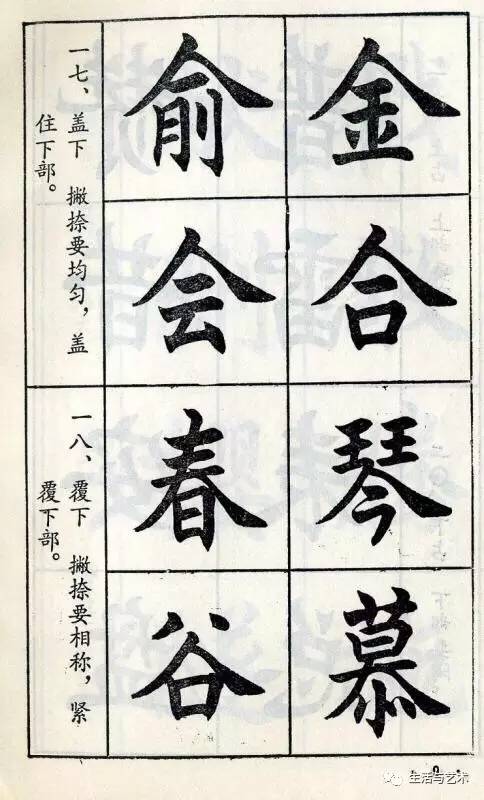 金 俞
合 会
一七、盖下 撇捺要均匀，盖
住下部。
琴 春
慕 谷
一八、覆下 撇捺要相称，紧
覆下部。
生活与艺术